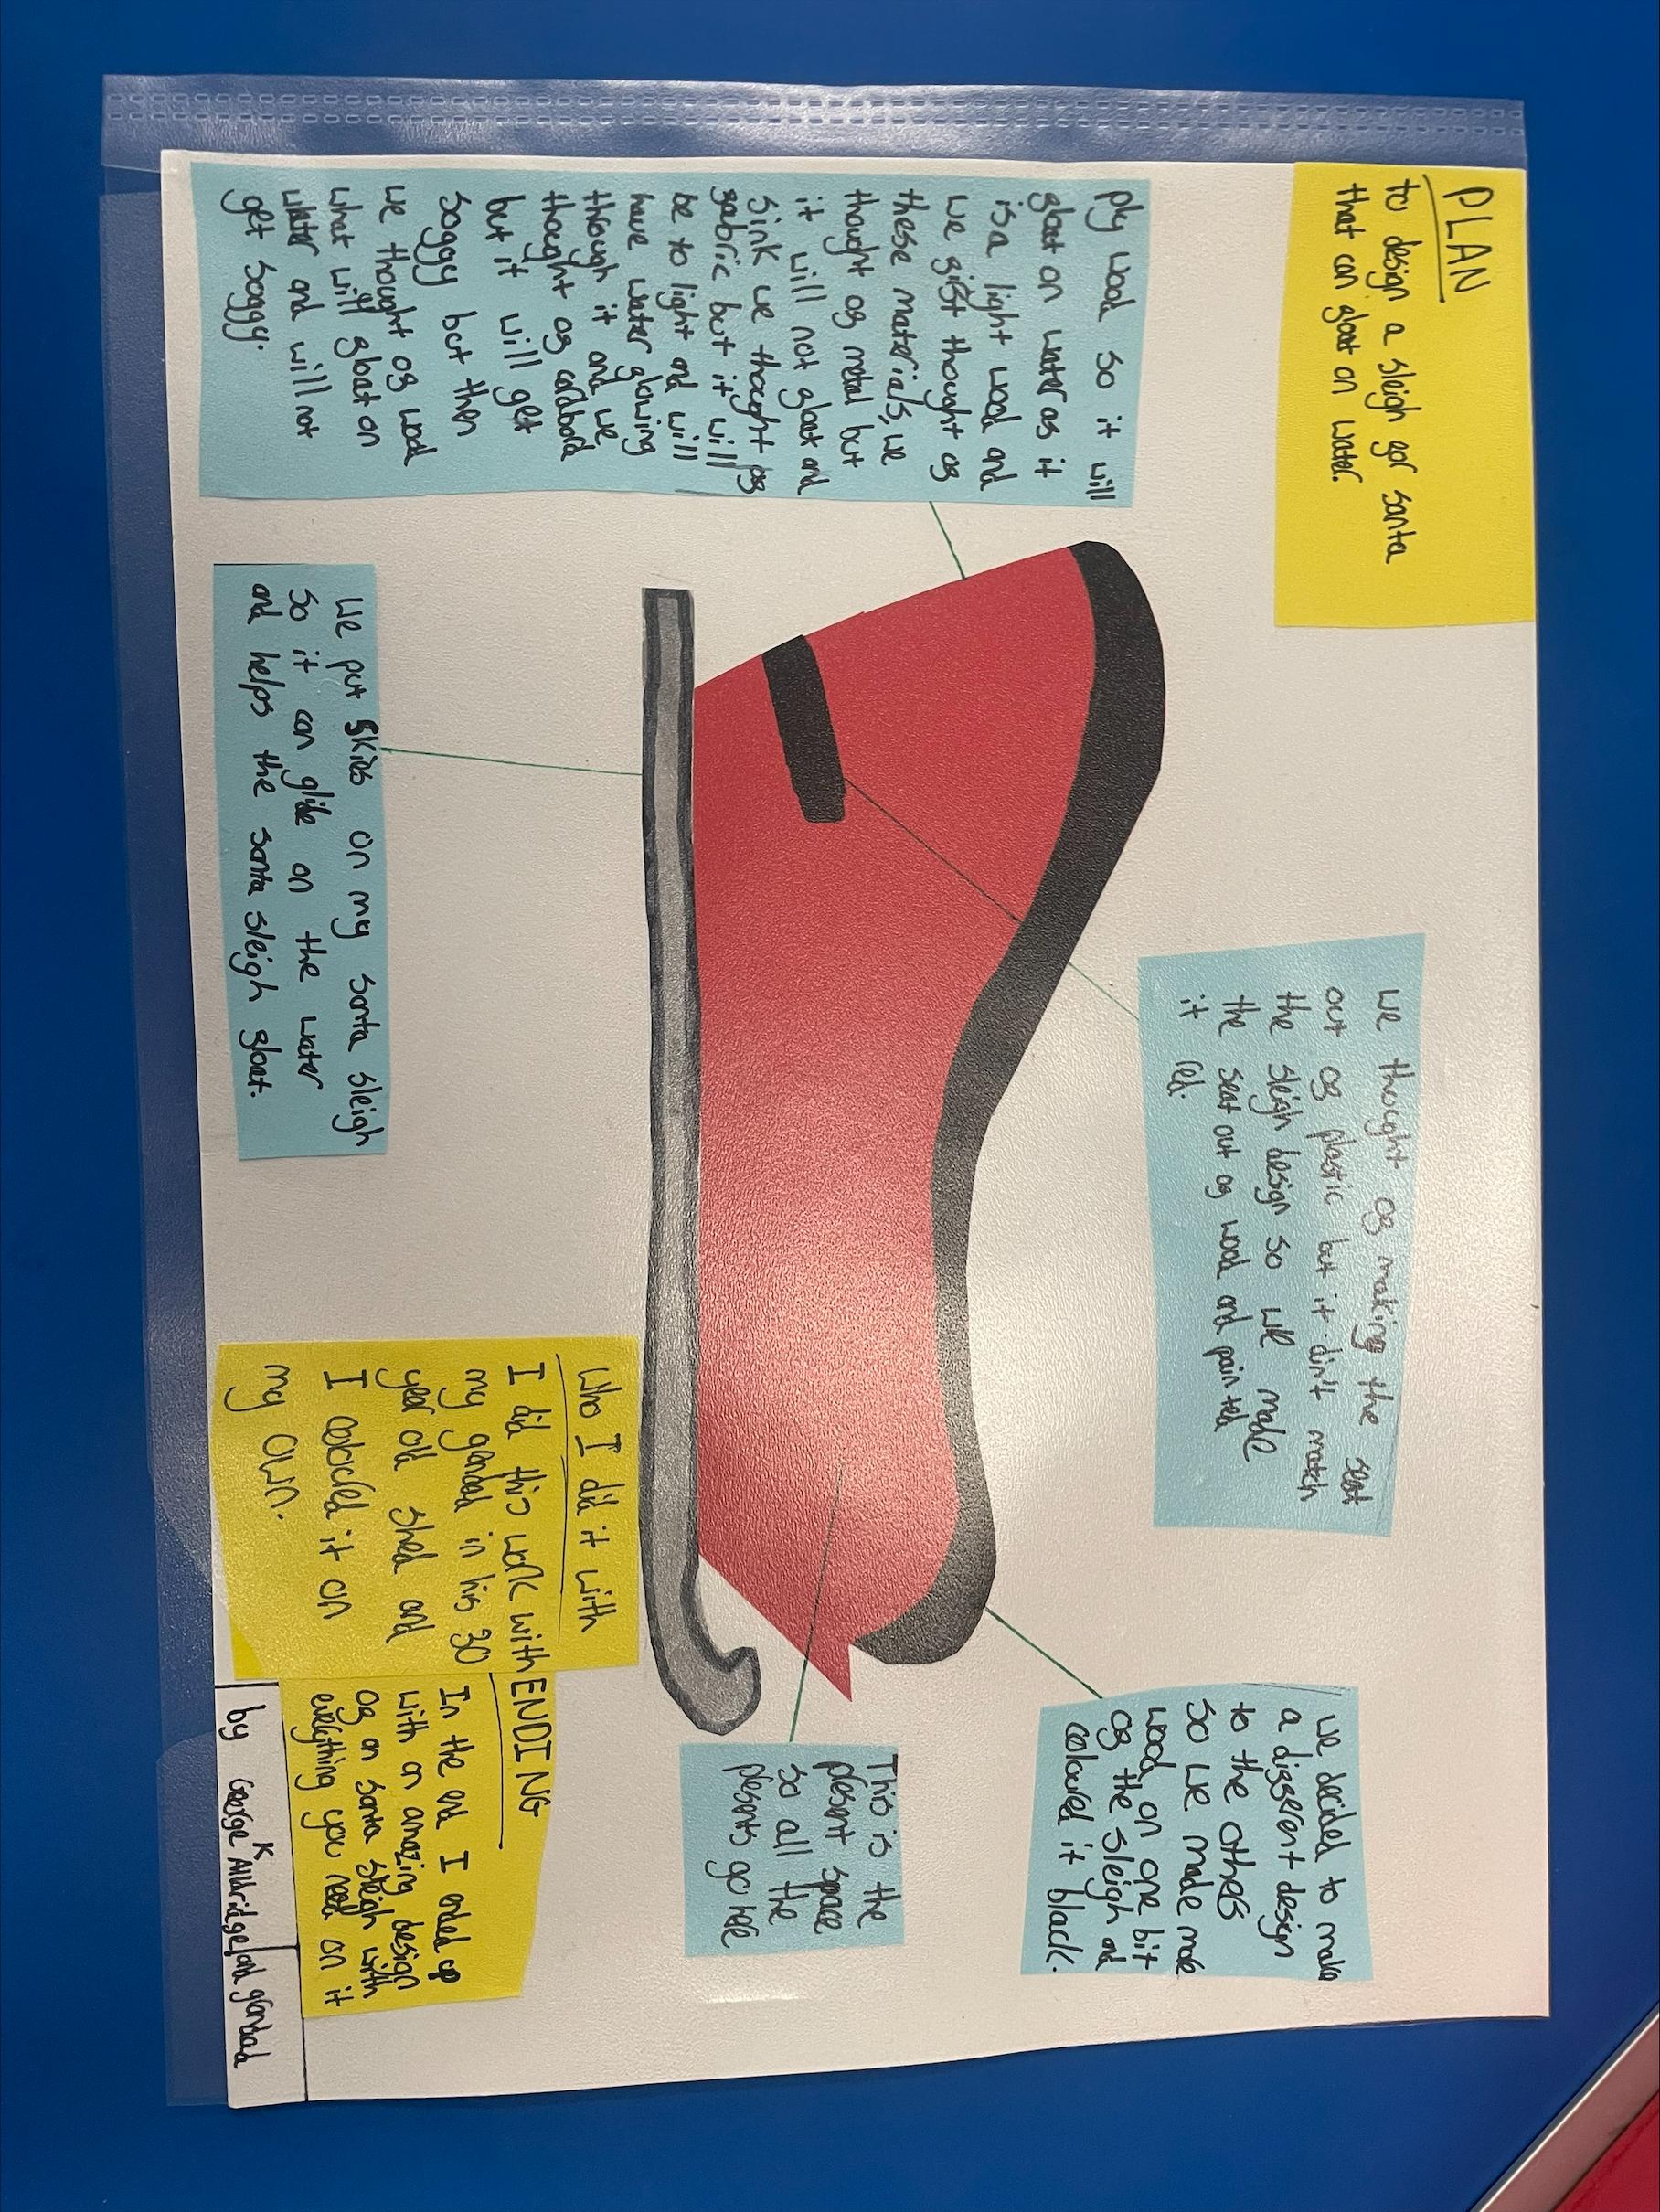 PLAN
to design a sleigh for santa
that can float on water.
Ply wood so it will
float on water as it
is a light wood and
we first thought of
these materials, we
thought of metal but
it will not float and
sink we thought of
fabric but it will
be to light and will
have water flowing
though it and we
thought of cardbord
but it will get
soggy but then
we thought of wood
what will float on
water and will not
get soggy.
We thought of making the seat
out of plastic but it din't match
the sleigh design so we made
the seat out of wood and painted
it red.
We put Skies on my santa sleigh
so it can glide on the water
and helps the santa sleigh float.
we decided to make
a different design
to the others
so we made more
wood on one bit
of the sleigh and
coloured it black.
This is the
present space
so all the
presents go here
Who I did it with
I did this work with
my grandad in his 30
year old shed and
I coloured it on
my own.
ENDING
In the end I ended up
with an amazing design
of an santa sleigh with
everything you need on it
by George K Alldridge and grandad